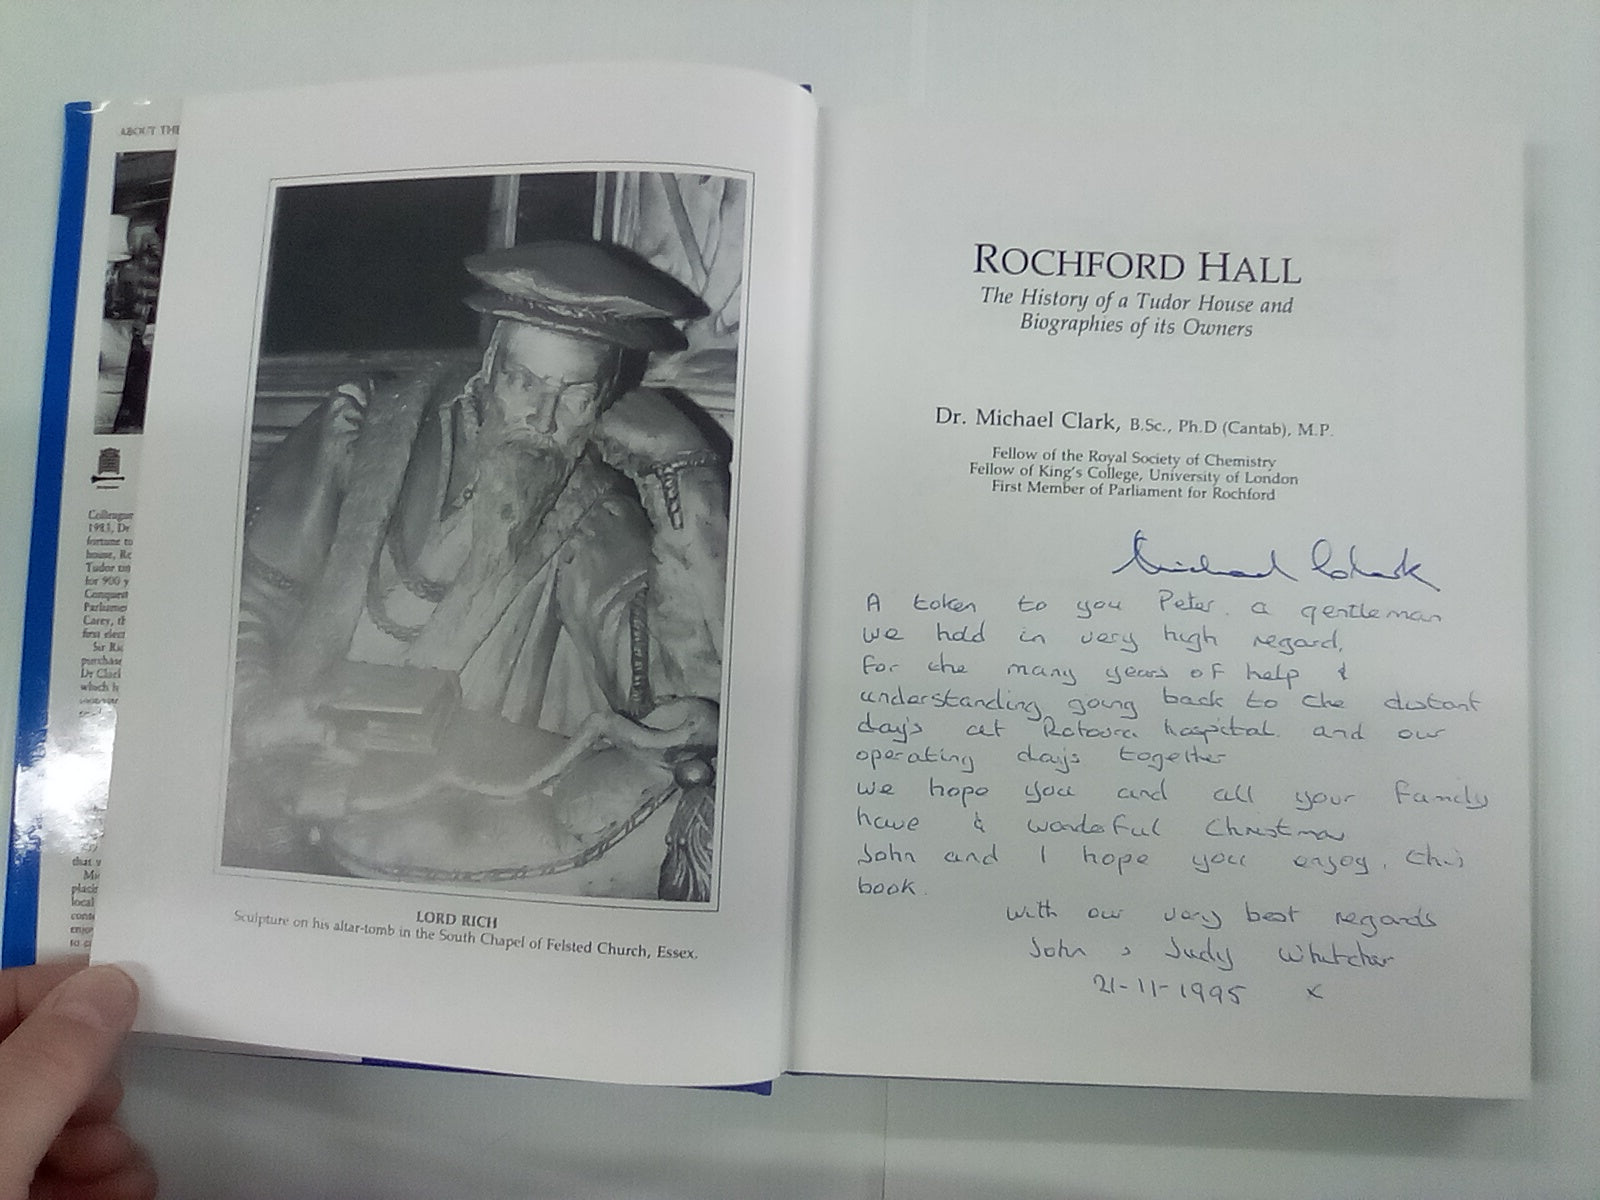 ABOUT THE
Colleague
1983, Dr
fortune to
house, Ro
Tudor
for 900 y
Conquest
Parliame
Carey, th
first elect
Sir Ric
purchase
Dr Clark
which h
that
placin
local
enjoy
LORD RICH
Sculpture on his altar-tomb in the South Chapel of Felsted Church, Essex.
ROCHFORD HALL
The History of a Tudor House and
Biographies of its Owners
Dr. Michael Clark, B.Sc., Ph.D (Cantab), M.P.
Fellow of the Royal Society of Chemistry
Fellow of King's College, University of London
First Member of Parliament for Rochford
Michael Clark
A token to you Peter. a gentleman
we hold in very high regard,
For the many years of help &
understanding going back to the distant
day's at hospital. and our
operating day's together
we hope you and all your Family
have a wonderful Christmas
John and I hope you enjoy this
book.
with our very best regards
John & Judy Whitcher
21-11-1995 x